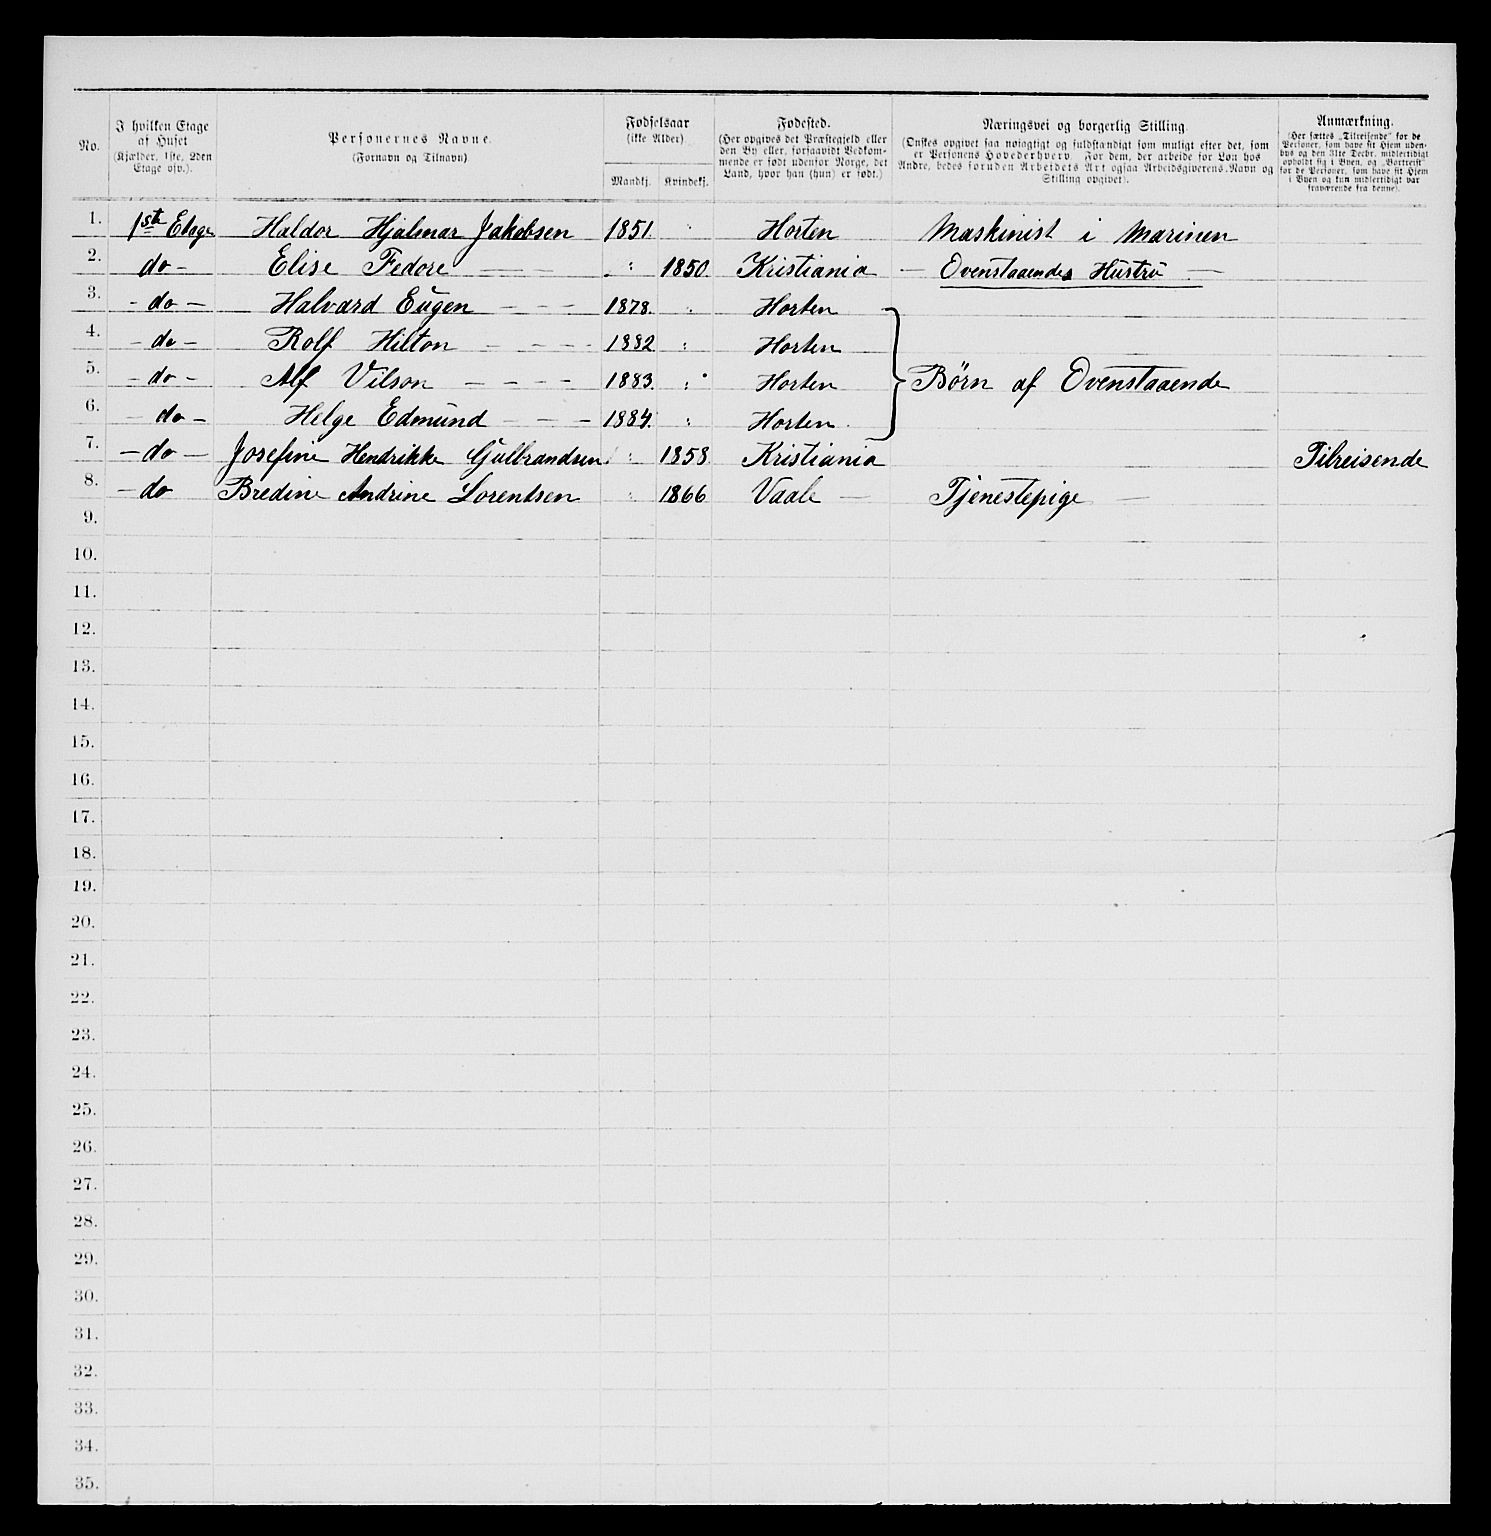 No.
I hvilken Etage
af Huset
(Kjælder, 1ste, 2den
Etage osv.).
Personernes Navne.
(Fornavn og Tilnavn)
Fødselsaar
(ikke Alder)
Mandkj.
Kvindekj.
Fødested.
(Her opgives det Præstegjeld eller
den By eller, forsaavidt Vedkom-
mende er født udenfor Norge, det
Land, hvor han (hun) er født.)
Næringsvei og borgerlig Stilling.
(Ønskes opgivet saa nøiagtigt og fuldstændigt som muligt efter det, som
er Personens Hovederhverv. For dem, der arbeide for Løn hos
Andre, bedes foruden Arbeidets Art ogsaa Arbeidsgiverens Navn og
Stilling opgivet).
Anmærkning.
(Her sættes „Tilreisende" for de
Personer, som have sit Hjem uden-
bys og den 31te Decbr. midlertidigt
opholdt sig i Byen, og „Bortreist"
for de Personer, som have sit Hjem
i Byen og kun midlertidigt var
fraværende fra denne).
1. 1ste Etage Haldor Hjalmar Jakobsen 1851. Horten Maskinist i Marinen
2. do - Elise Fedore — — — 1850 Kristiania — Ovenstaaendes Hustru —
3. - do - Halvard Eugen — — — 1878. Horten
4. - do - Rolf Hilton — — — 1882 Horten
5. - do - Alf Vilson — — — — 1883. Horten } Børn af Ovenstaaende
6. - do - Helge Edmund — — — 1884. Horten.
7. - do - Josefine Hendrikke Gulbrandsen 1858 Kristiania Tilreisende
8. - do Bredine Andrine Lorentsen 1866 Vaale — Tjenestepige —
9.
10.
11.
12.
13.
14.
15.
16.
17.
18.
19.
20.
21.
22.
23.
24.
25.
26.
27.
28.
29.
30.
31.
32.
33.
34.
35.